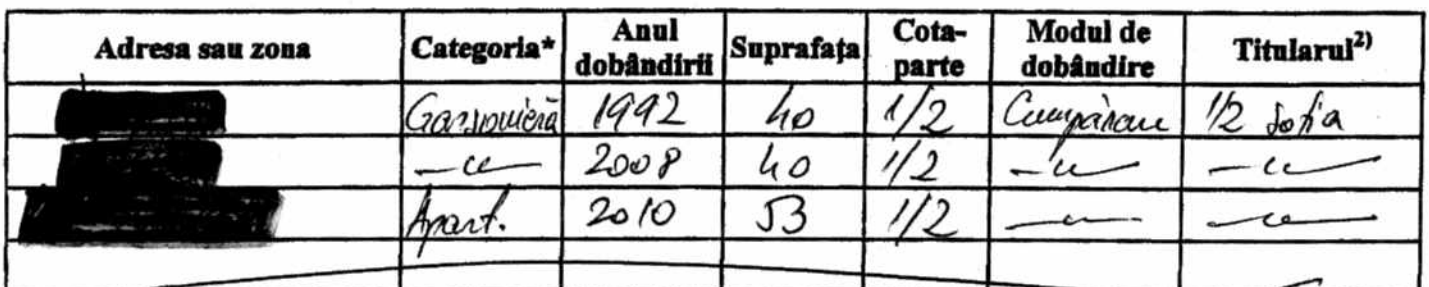 Adresa sau zona Categoria* Anul dobândirii Suprafața Cota-parte Modul de dobândire Titularul2)
Garsonieră 1992 40 1/2 Cumpărare 1/2 Sofia
—〃— 2008 40 1/2 —〃— —〃—
Apart. 2010 53 1/2 —〃— —〃—